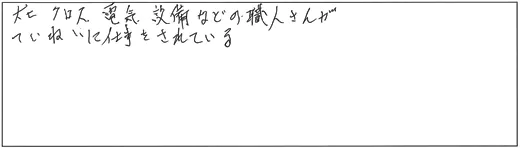 大工 クロス 電気 設備などの職人さんが
ていねいに仕事をされている